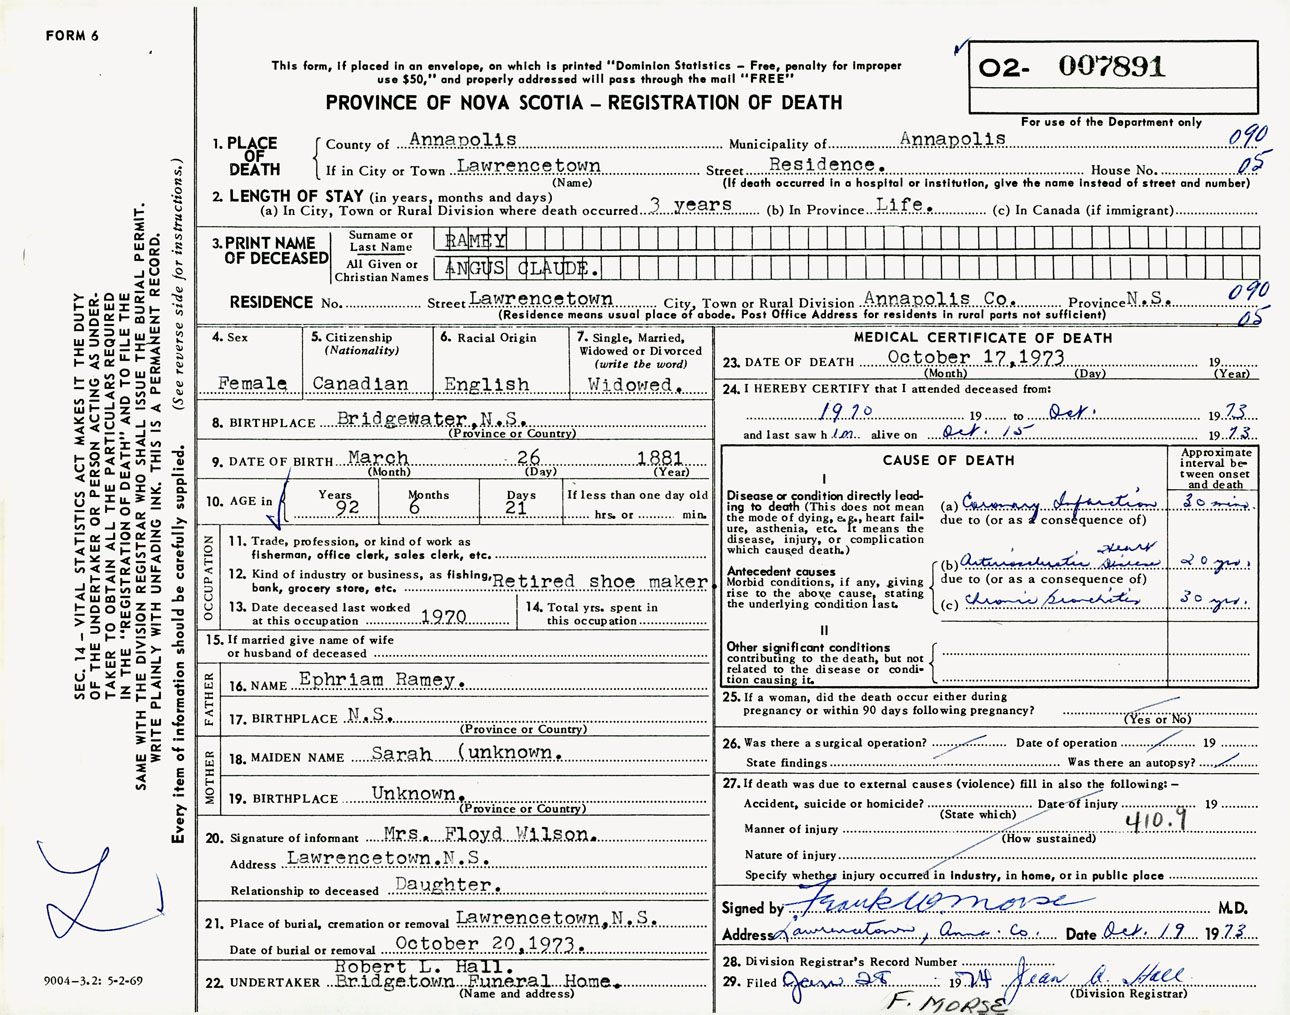 FORM 6
This form, if placed in an envelope, on which is printed "Dominion Statistics – Free, penalty for improper
use $50," and properly addressed will pass through the mail "FREE"
PROVINCE OF NOVA SCOTIA – REGISTRATION OF DEATH
02- 007891
For use of the Department only
1. PLACE OF DEATH
County of Annapolis Municipality of Annapolis 090
If in City or Town Lawrencetown Street Residence. House No. 05
(Name) (If death occurred in a hospital or institution, give the name instead of street and number)
2. LENGTH OF STAY (in years, months and days)
(a) In City, Town or Rural Division where death occurred 3 years (b) In Province Life. (c) In Canada (if immigrant)
3. PRINT NAME OF DECEASED
Surname or Last Name RAMEY
All Given or Christian Names ANGUS CLAUDE.
RESIDENCE No. Street Lawrencetown City, Town or Rural Division Annapolis Co. Province N.S. 090
(Residence means usual place of abode. Post Office Address for residents in rural parts not sufficient) 05
4. Sex
Female
5. Citizenship
(Nationality)
Canadian
6. Racial Origin
English
7. Single, Married,
Widowed or Divorced
(write the word)
Widowed.
8. BIRTHPLACE Bridgewater,N.S.
(Province or Country)
9. DATE OF BIRTH March 26 1881
(Month) (Day) (Year)
10. AGE in
Years 92
Months 6
Days 21
If less than one day old
hrs. or min.
OCCUPATION
11. Trade, profession, or kind of work as
fisherman, office clerk, sales clerk, etc.
12. Kind of industry or business, as fishing,
bank, grocery store, etc. Retired shoe maker.
13. Date deceased last worked
at this occupation 1970
14. Total yrs. spent in
this occupation
15. If married give name of wife
or husband of deceased
FATHER
16. NAME Ephriam Ramey.
17. BIRTHPLACE N.S.
(Province or Country)
MOTHER
18. MAIDEN NAME Sarah (unknown.
19. BIRTHPLACE Unknown.
(Province or Country)
20. Signature of informant Mrs. Floyd Wilson.
Address Lawrencetown.N.S.
Relationship to deceased Daughter.
21. Place of burial, cremation or removal Lawrencetown,N.S.
Date of burial or removal October 20,1973.
Robert L. Hall.
22. UNDERTAKER Bridgetown Funeral Home.
(Name and address)
MEDICAL CERTIFICATE OF DEATH
23. DATE OF DEATH October 17,1973 19
(Month) (Day) (Year)
24. I HEREBY CERTIFY that I attended deceased from:
1970 19 to Oct. 1973
and last saw h im alive on Oct. 15 1973
CAUSE OF DEATH
Approximate
interval be-
tween onset
and death
I
Disease or condition directly lead-
ing to death (This does not mean
the mode of dying, e.g., heart fail-
ure, asthenia, etc. It means the
disease, injury, or complication
which caused death.)
(a) Coronary Infarction 30 min.
due to (or as a consequence of)
Antecedent causes
Morbid conditions, if any, giving
rise to the above cause, stating
the underlying condition last.
(b) Arteriosclerotic Heart Disease 20 yrs.
due to (or as a consequence of)
(c) Chronic Bronchitis 30 yrs.
II
Other significant conditions
contributing to the death, but not
related to the disease or condi-
tion causing it.
25. If a woman, did the death occur either during
pregnancy or within 90 days following pregnancy?
(Yes or No)
26. Was there a surgical operation? Date of operation 19
State findings Was there an autopsy?
27. If death was due to external causes (violence) fill in also the following:–
Accident, suicide or homicide? Date of injury 19
(State which)
Manner of injury 410.9
(How sustained)
Nature of injury
Specify whether injury occurred in industry, in home, or in public place
Signed by Frank W Morse M.D.
Address Lawrencetown, Anna. Co. Date Oct. 19 1973
28. Division Registrar's Record Number
29. Filed Jan 28 1974 Jean A. Hall
(Division Registrar)
F. MORSE
SEC. 14 – VITAL STATISTICS ACT MAKES IT THE DUTY
OF THE UNDERTAKER OR PERSON ACTING AS UNDER-
TAKER TO OBTAIN ALL THE PARTICULARS REQUIRED
IN THE "REGISTRATION OF DEATH" AND TO FILE THE
SAME WITH THE DIVISION REGISTRAR WHO SHALL ISSUE THE BURIAL PERMIT.
WRITE PLAINLY WITH UNFADING INK. THIS IS A PERMANENT RECORD.
Every item of information should be carefully supplied. (See reverse side for instructions.)
9004–3.2: 5-2-69